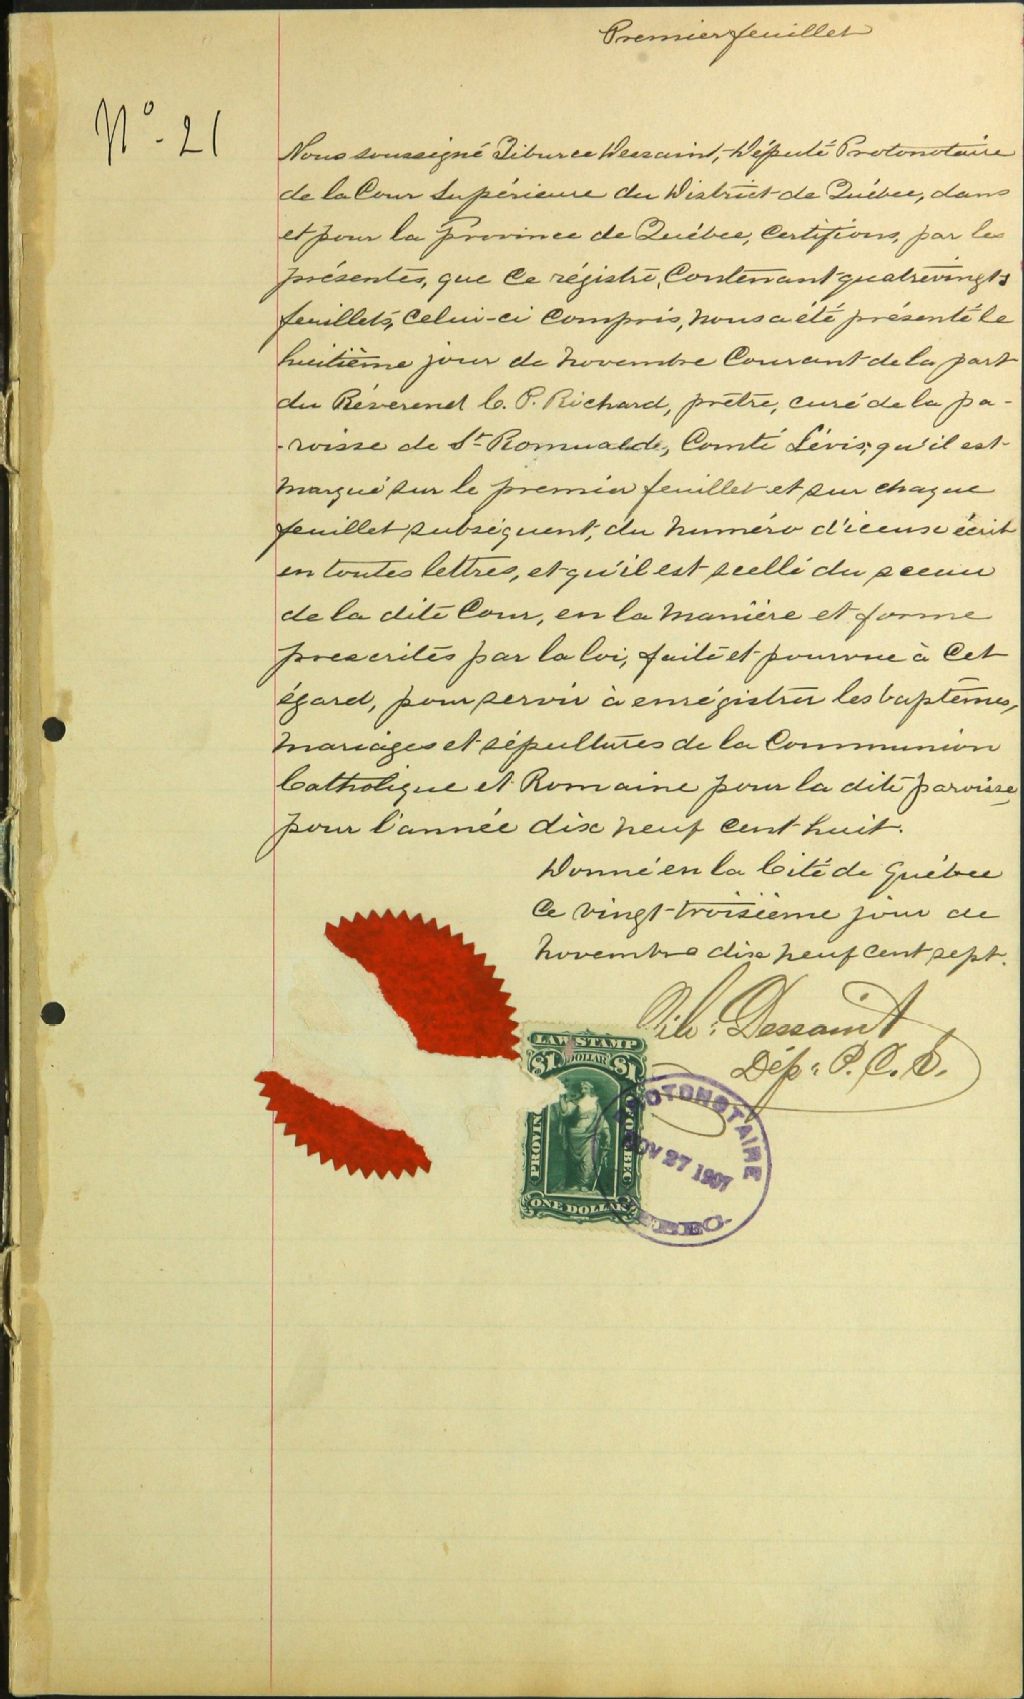 Premier feuillet
No. 21
Nous soussigné Tiburce Dessaint, Député Protonotaire
de la Cour Supérieure du District de Québec, dans
et pour la Province de Québec, Certifions, par les
présentes, que ce régistre, Contenant quatrevingts
feuillets, celui-ci compris, nous a été présenté le
huitième jour de novembre Courant de la part
du Révérend C. P. Richard, prêtre, curé de la pa-
-roisse de St Romuald, Comté Lévis, qu'il est
marqué sur le premier feuillet et sur chaque
feuillet subséquent, du numéro d'iceux écrit
en toutes lettres, et qu'il est scellé du sceau
de la dite Cour, en la manière et forme
prescrites par la loi, faite et pourvue à cet
égard, pour servir à enrégistrer les baptêmes,
mariages et sépultures de la Communion
Catholique et Romaine pour la dite paroisse,
pour l'année dix neuf cent huit.
Donné en la Cité de Québec
ce vingt-troisième jour de
novembre dix neuf cent sept.
Tib: Dessaint
Dép: P. C. S.
LAW STAMP
$1 DOLLAR $1
PROVIN
QUEBEC
ONE DOLLAR
PROTONOTAIRE
NOV 27 1907
QUEBEC